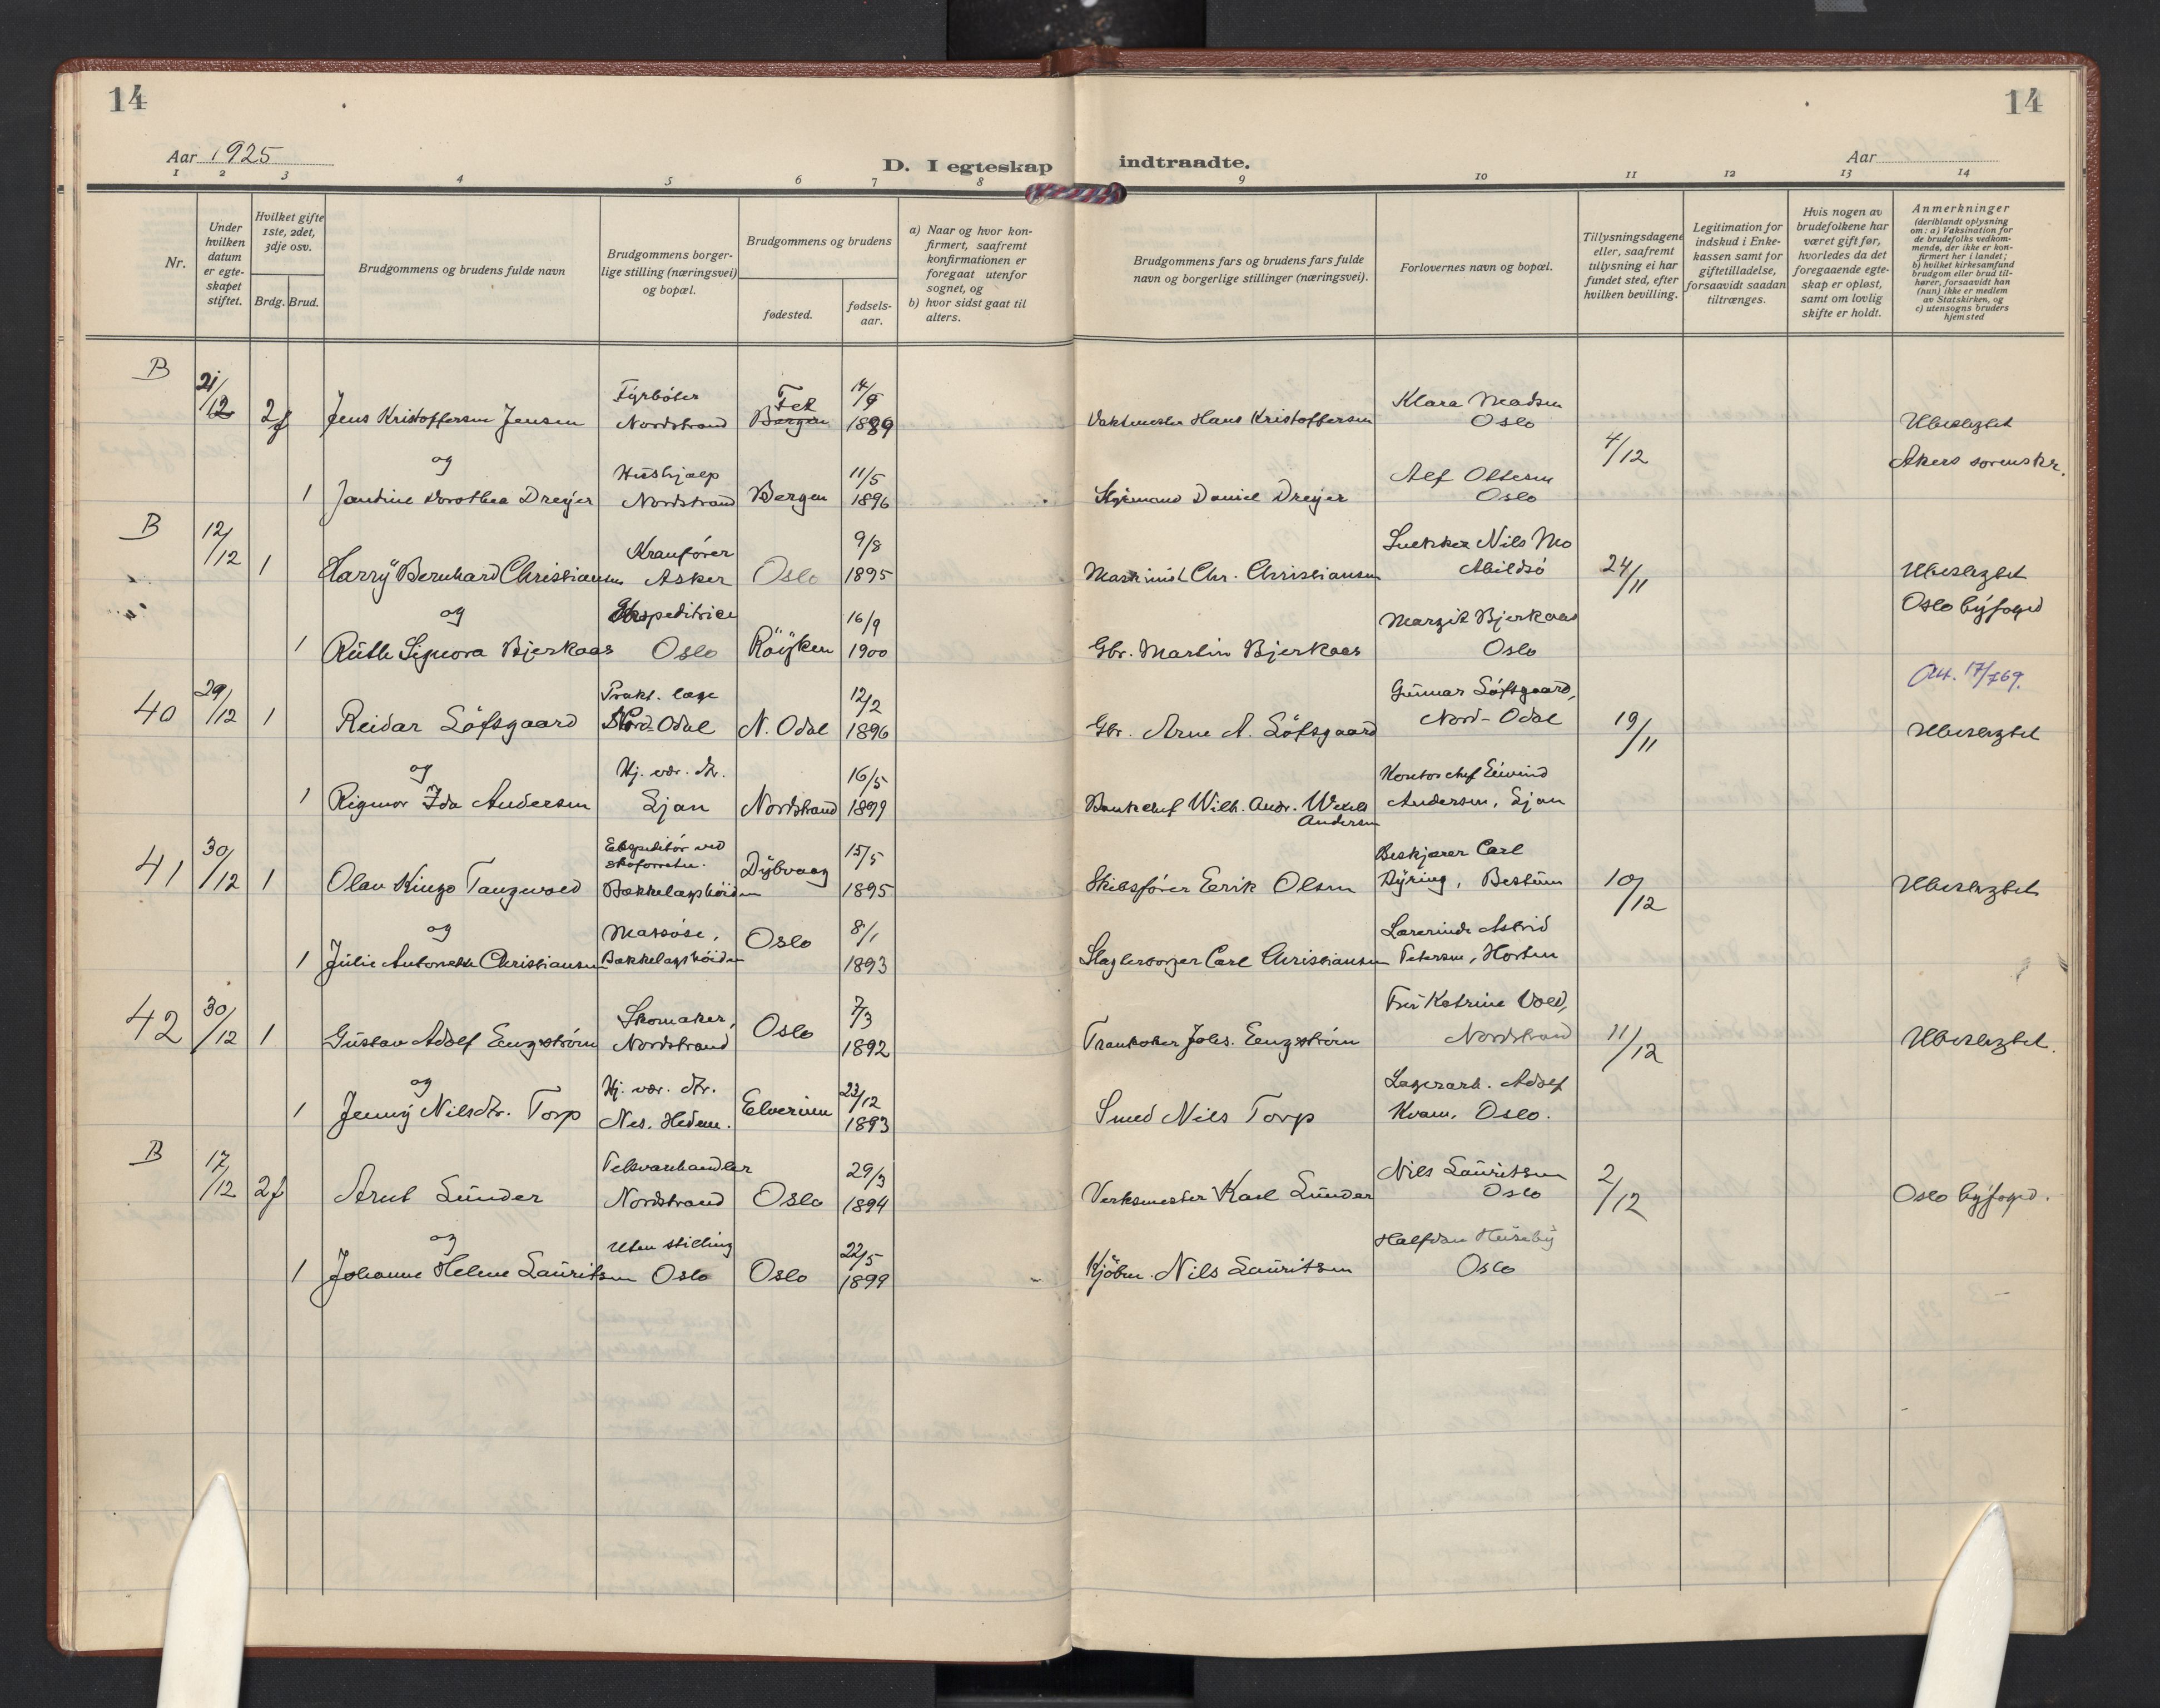 14
14
Aar 1925
D. I egteskap indtraadte.
Aar
1 2 3 4 5 6 7 8 9 10 11 12 13 14
Nr.
Under
hvilken
datum
er egte-
skapet
stiftet.
Hvilket gifte
1ste, 2det,
3dje osv.
Brdg. Brud.
Brudgommens og brudens fulde navn
Brudgommens borger-
lige stilling (næringsvei)
og bopæl.
Brudgommens og brudens
fødested.
fødsels-
aar.
a) Naar og hvor kon-
firmert, saafremt
konfirmationen er
foregaat utenfor
sognet, og
b) hvor sidst gaat til
alters.
Brudgommens fars og brudens fars fulde
navn og borgerlige stillinger (næringsvei).
Forlovernes navn og bopæl.
Tillysningsdagene
eller, saafremt
tillysning ei har
fundet sted, efter
hvilken bevilling.
Legitimation for
indskud i Enke-
kassen samt for
giftetilladelse,
forsaavidt saadan
tiltrænges.
Hvis nogen av
brudefolkene har
været gift før,
hvorledes da det
foregaaende egte-
skap er opløst,
samt om lovlig
skifte er holdt.
Anmerkninger
(deriblandt oplysning
om: a) Vaksination for
de brudefolks vedkom-
mende, der ikke er kon-
firmert her i landet;
b) hvilket kirkesamfund
brudgom eller brud til-
hører, forsaavidt han
(hun) ikke er medlem
av Statskirken, og
c) utensogns bruders
hjemsted
B 21/12 2f Jens Kristoffersen Jensen Fyrbøter Nordstrand Fet Bergen 14/9 1889 Vaktmester Hans Kristoffersen Klara Madsen Oslo 4/12 Ubeslegtet
Akers sorenskr.
og
1 Jandine Dorothea Dreyer Hushjælp Nordstrand Bergen 11/5 1896 Styrmand Daniel Dreyer Alf Oltesen Oslo
B 12/12 1 Harry Bernhard Christiansen Kranfører Asker Oslo 9/8 1895 Maskinist Chr. Christiansen Snekker Nils Mo Abildsø 24/11 Ubeslegtet
Oslo byfoged
og
1 Ruth Signora Bjerkaas Ekspeditrice Oslo Röyken 16/9 1900 Gbr. Martin Bjerkaas Margit Bjerkaas Oslo
40 29/12 1 Reidar Löfsgaard Prakt. læge Nord-Odal N. Odal 12/2 1896 Gbr. Arne A. Löfsgaard Gunnar Löfsgaard, Nord-Odal 19/11 Att. 17/769.
Ubeslegtet
og
1 Rigmor Ida Andersen Hj. vær. dtr. Ljan Nordstrand 16/5 1899 Bankchef Wilh. Andr. Wexels Andersen Kontorchef Eivind Andersen, Ljan
41 30/12 1 Olav Kingo Tangevold Ekspeditør ved skoforretn. Bækkelagshöiden Dybvaag 15/5 1895 Skibsfører Eerik Olsen Beskjærer Carl Dyring, Bestum 10/12 Ubeslegtet
og
1 Julie Antonette Christiansen Massøse, Bækkelagshöiden Oslo 8/1 1893 Slagtersvenn Carl Christiansen Lærerinde Astrid Petersen, Horten
42 30/12 1 Gustav Adolf Engström Skomaker, Nordstrand Oslo 7/3 1892 Trankoker Johs. Engström Fru Katrine Vold, Nordstrand 11/12 Ubeslegtet.
og
1 Jenny Nilsdtr. Torp Hj. vær. dtr. Nes. Hedm. Elverum 23/12 1893 Smed Nils Torp Lagerarb. Adolf Kvam, Oslo.
B 17/12 2f Arnt Sunder Felsvarehandler Nordstrand Oslo 29/3 1894 Verksmester Karl Sunder Nils Lauritsen Oslo 2/12 Oslo byfoged.
og
1 Johanne Helene Lauritsen Uten stilling Oslo Oslo 22/5 1899 Kjöbm. Nils Lauritsen Halfdan Huseby Oslo